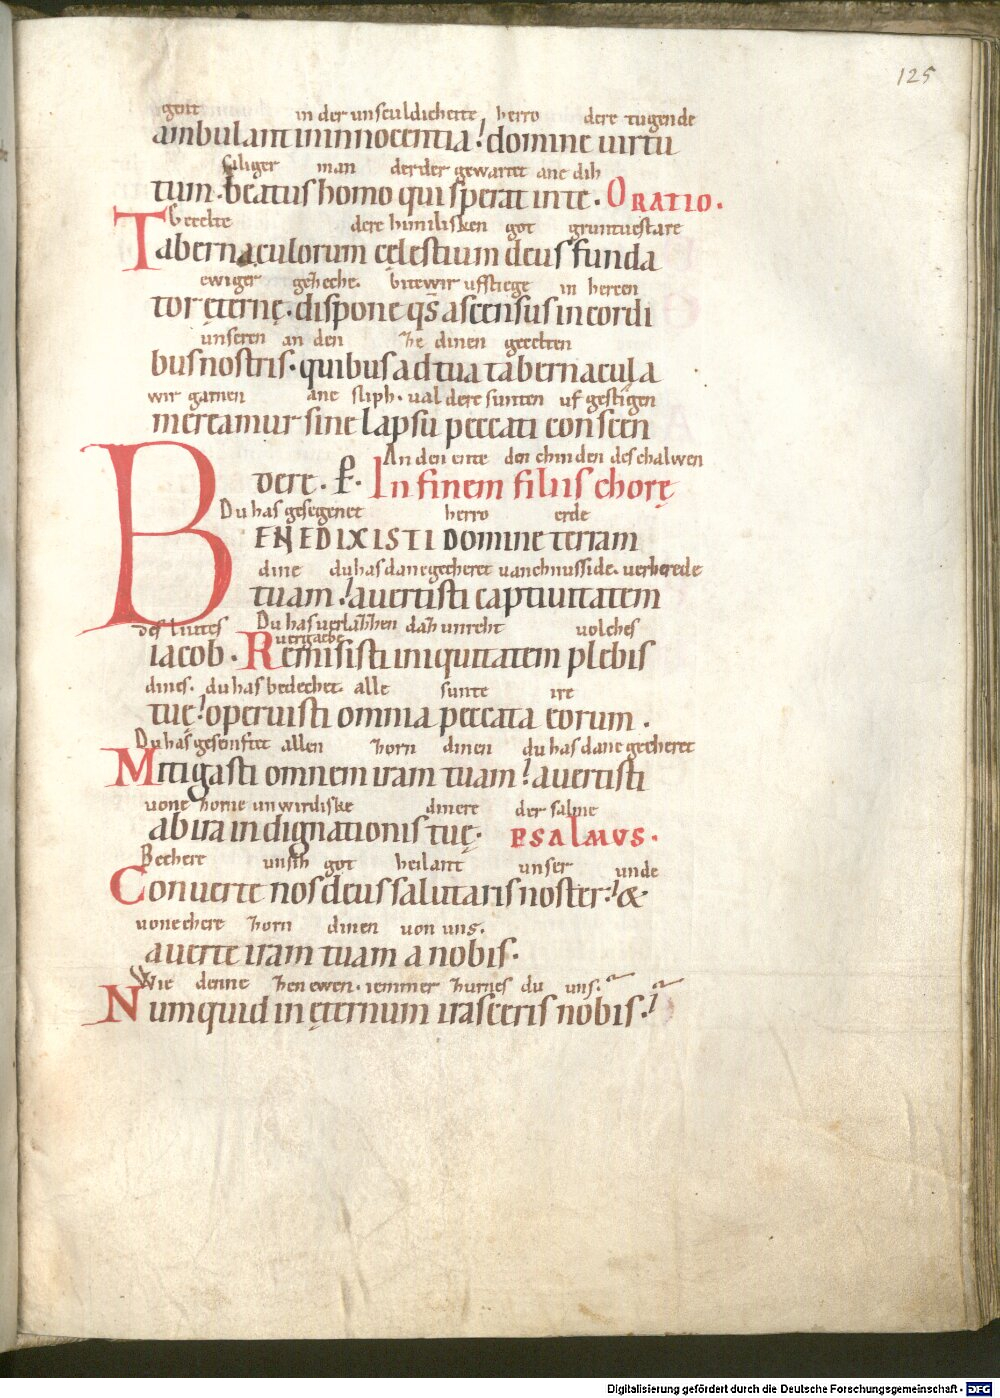 125
goit in der unsculdicheite herro dere tugende
ambulant in innocentia. domine uirtu
saliger man der der gewartet ane dih
tum. beatus homo qui sperat in te. ORATIO.
becelte dere himilisken got gruntuestare
Tabernaculorum cęlestium deus funda
ewiger geheche. bite wir ufstiege in herten
tor ęternę. dispone qs ascensus in cordi
unseren an den ze dinen gecelten
bus nostris. quibus ad tua tabernacula
wir garnen ane sliph. ual dere sunten uf gestigen
mereamur sine lapsu peccati conscen
An den ente den chinden des chalwen
dere. In finem filiis chorę
Du has gesegenet herro erde
BENEDIXISTI Domine terram
dine du has dane gecheret uanchnusside. verherede
tuam. auertisti captiuitatem
des liutes Du has verlazzen daz unreht volches
iacob. Remisisti iniquitatem plebis
uergaebe
dines. du has bedechet. alle sunte ire
tuę. operuisti omnia peccata eorum.
Du has gesemftet allen zorn dinen du has dane gecheret
Mitigasti omnem iram tuam. auertisti
uone zorne unwirdiske dinere der salme
ab ira indignationis tuę. PSALMVS.
Bechere unsih got heilant unser unde
Conuerte nos deus salutaris noster. &
uonechere zorn dinen uon uns.
auerte iram tuam a nobis.
Wie denne zen ewen. iemmer zurnes du uns.
Numquid in ęternum irasceris nobis.
Digitalisierung gefördert durch die Deutsche Forschungsgemeinschaft - DFG